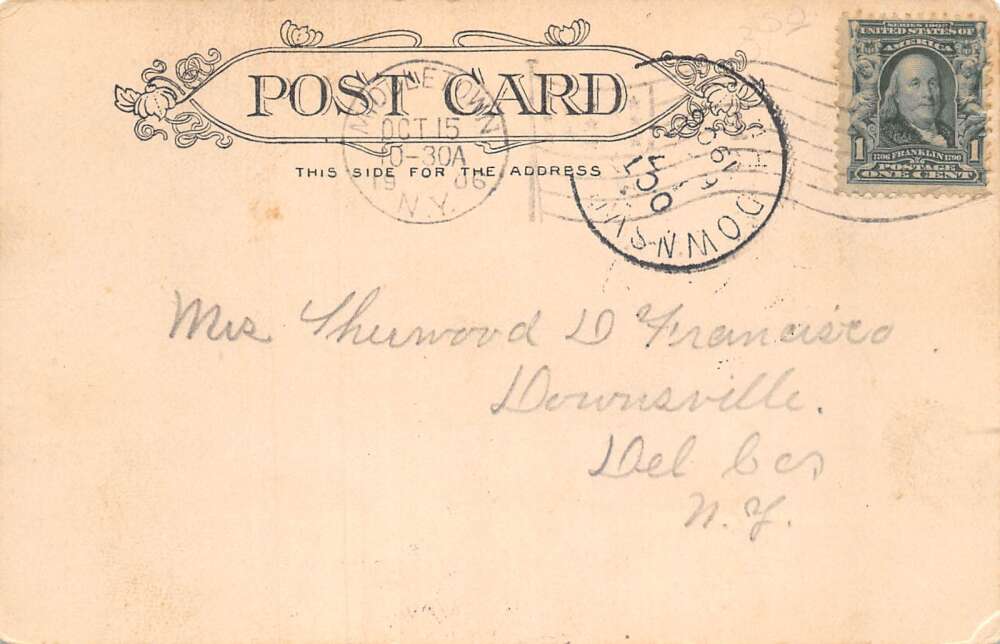 POST CARD
THIS SIDE FOR THE ADDRESS
MIDDLETOWN
OCT 15
10-30A
1906
N.Y.
DOWNSV
OCT
SERIES 1902
UNITED STATES OF
AMERICA
1 1
1706 FRANKLIN 1790
POSTAGE
ONE CENT
Mrs Sherwood D Francisco
Downsville.
Del Co
N.Y.